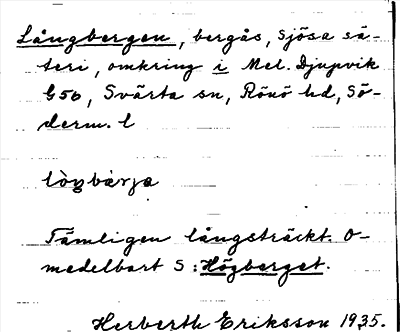 Långbergen, bergås, Sjösa sä-
teri, omkring i Mel. Djupvik
G56, Svärta sn, Rönö hd, Sö-
derm. l
lòŋbàrja
Tämligen långsträckt. O-
medelbart S: Högberget.
Herberth Eriksson 1935.